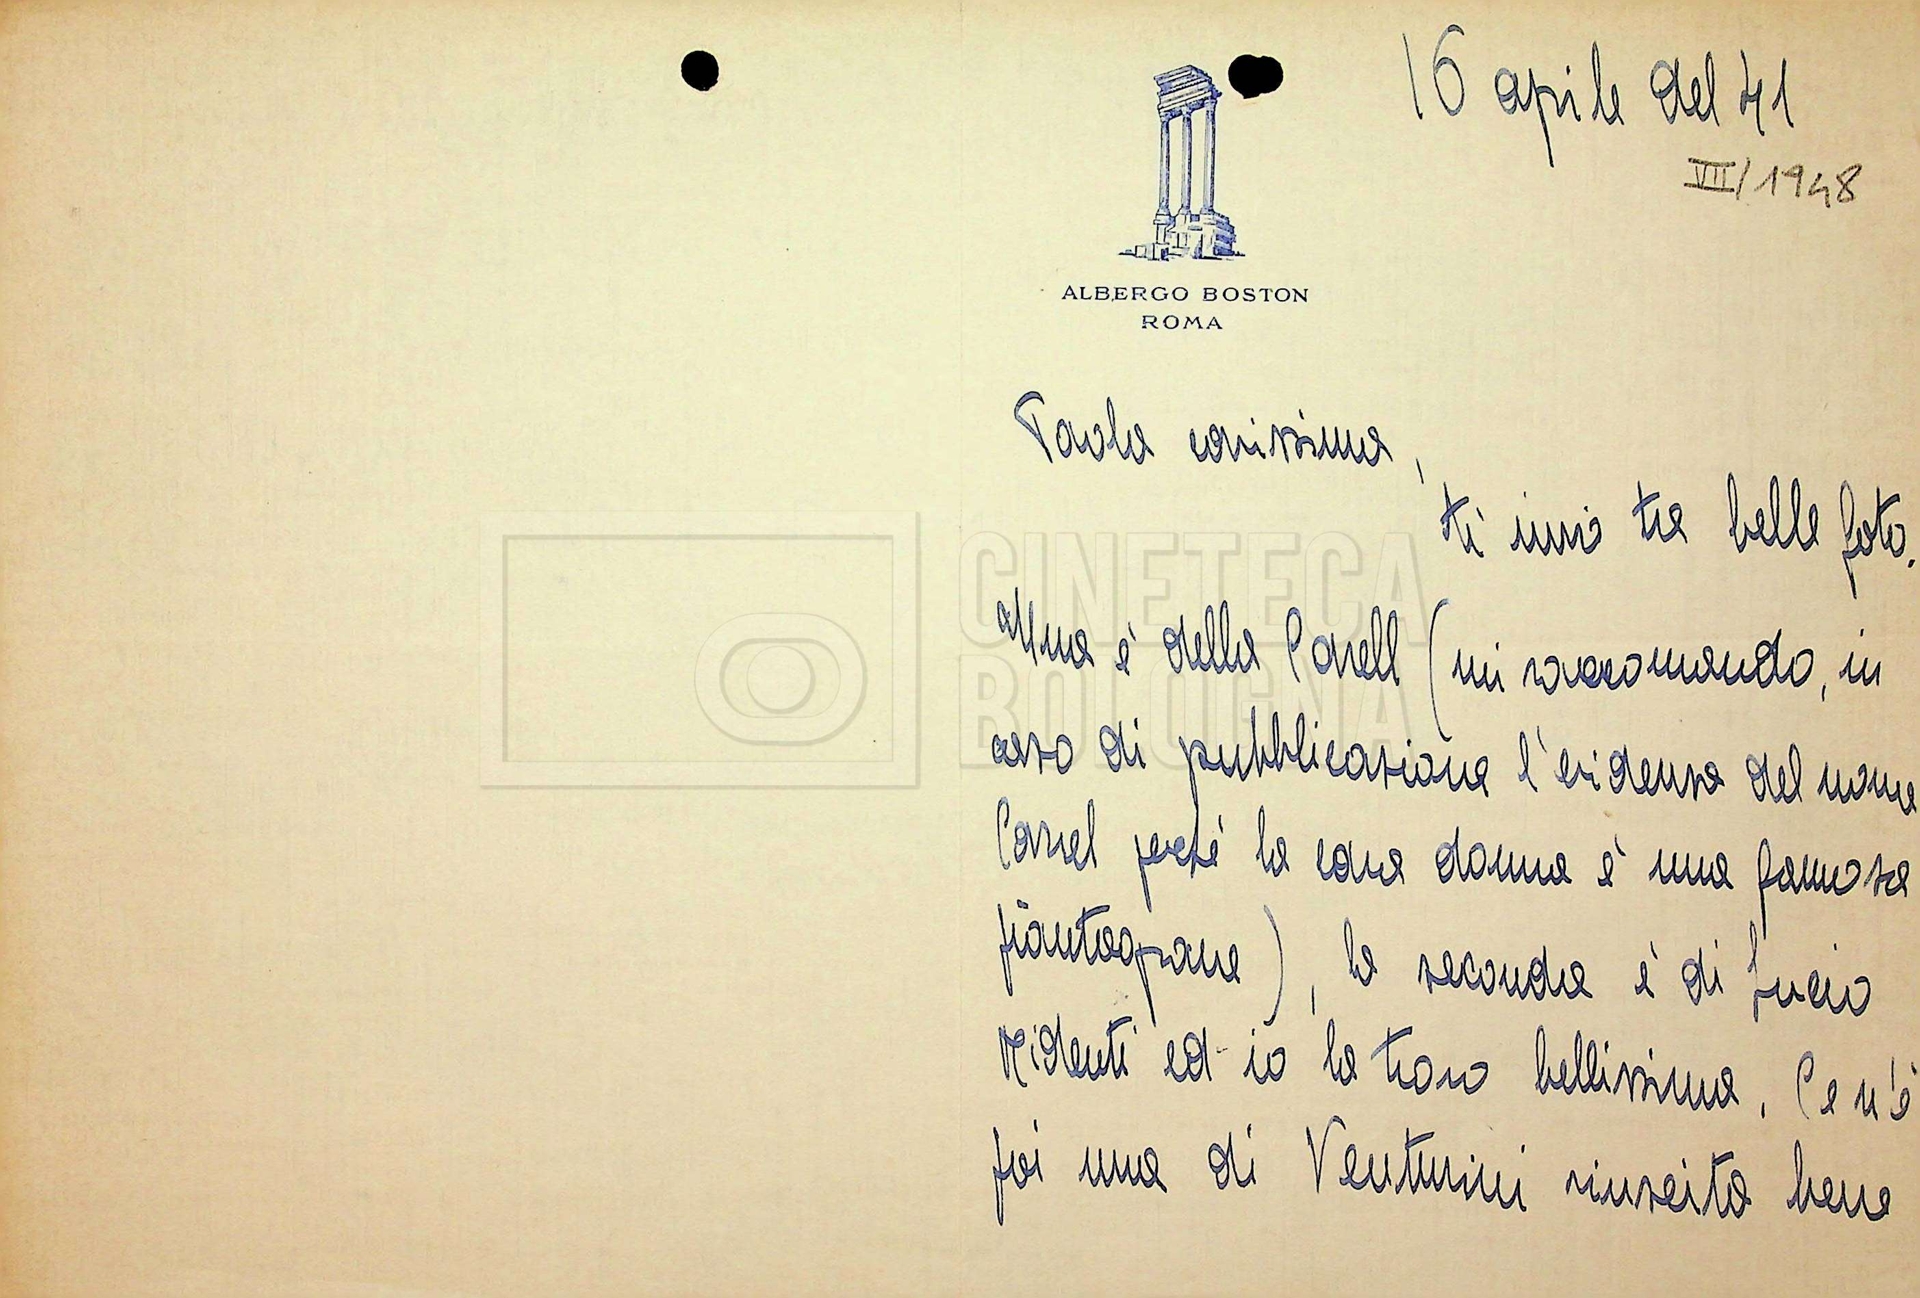 16 aprile del 41
VII/1948
ALBERGO BOSTON
ROMA
Paola carissima,
ti invio tre belle foto.
Una è della Carell (mi raccomando, in
caso di pubblicazione l'evidenza del nome
Carel perché la cara donna è una famosa
piantagrane), la seconda è di Lucio
Ridenti ed io la trovo bellissima. Ce n'è
poi una di Venturini riuscita bene
CINETECA
BOLOGNA